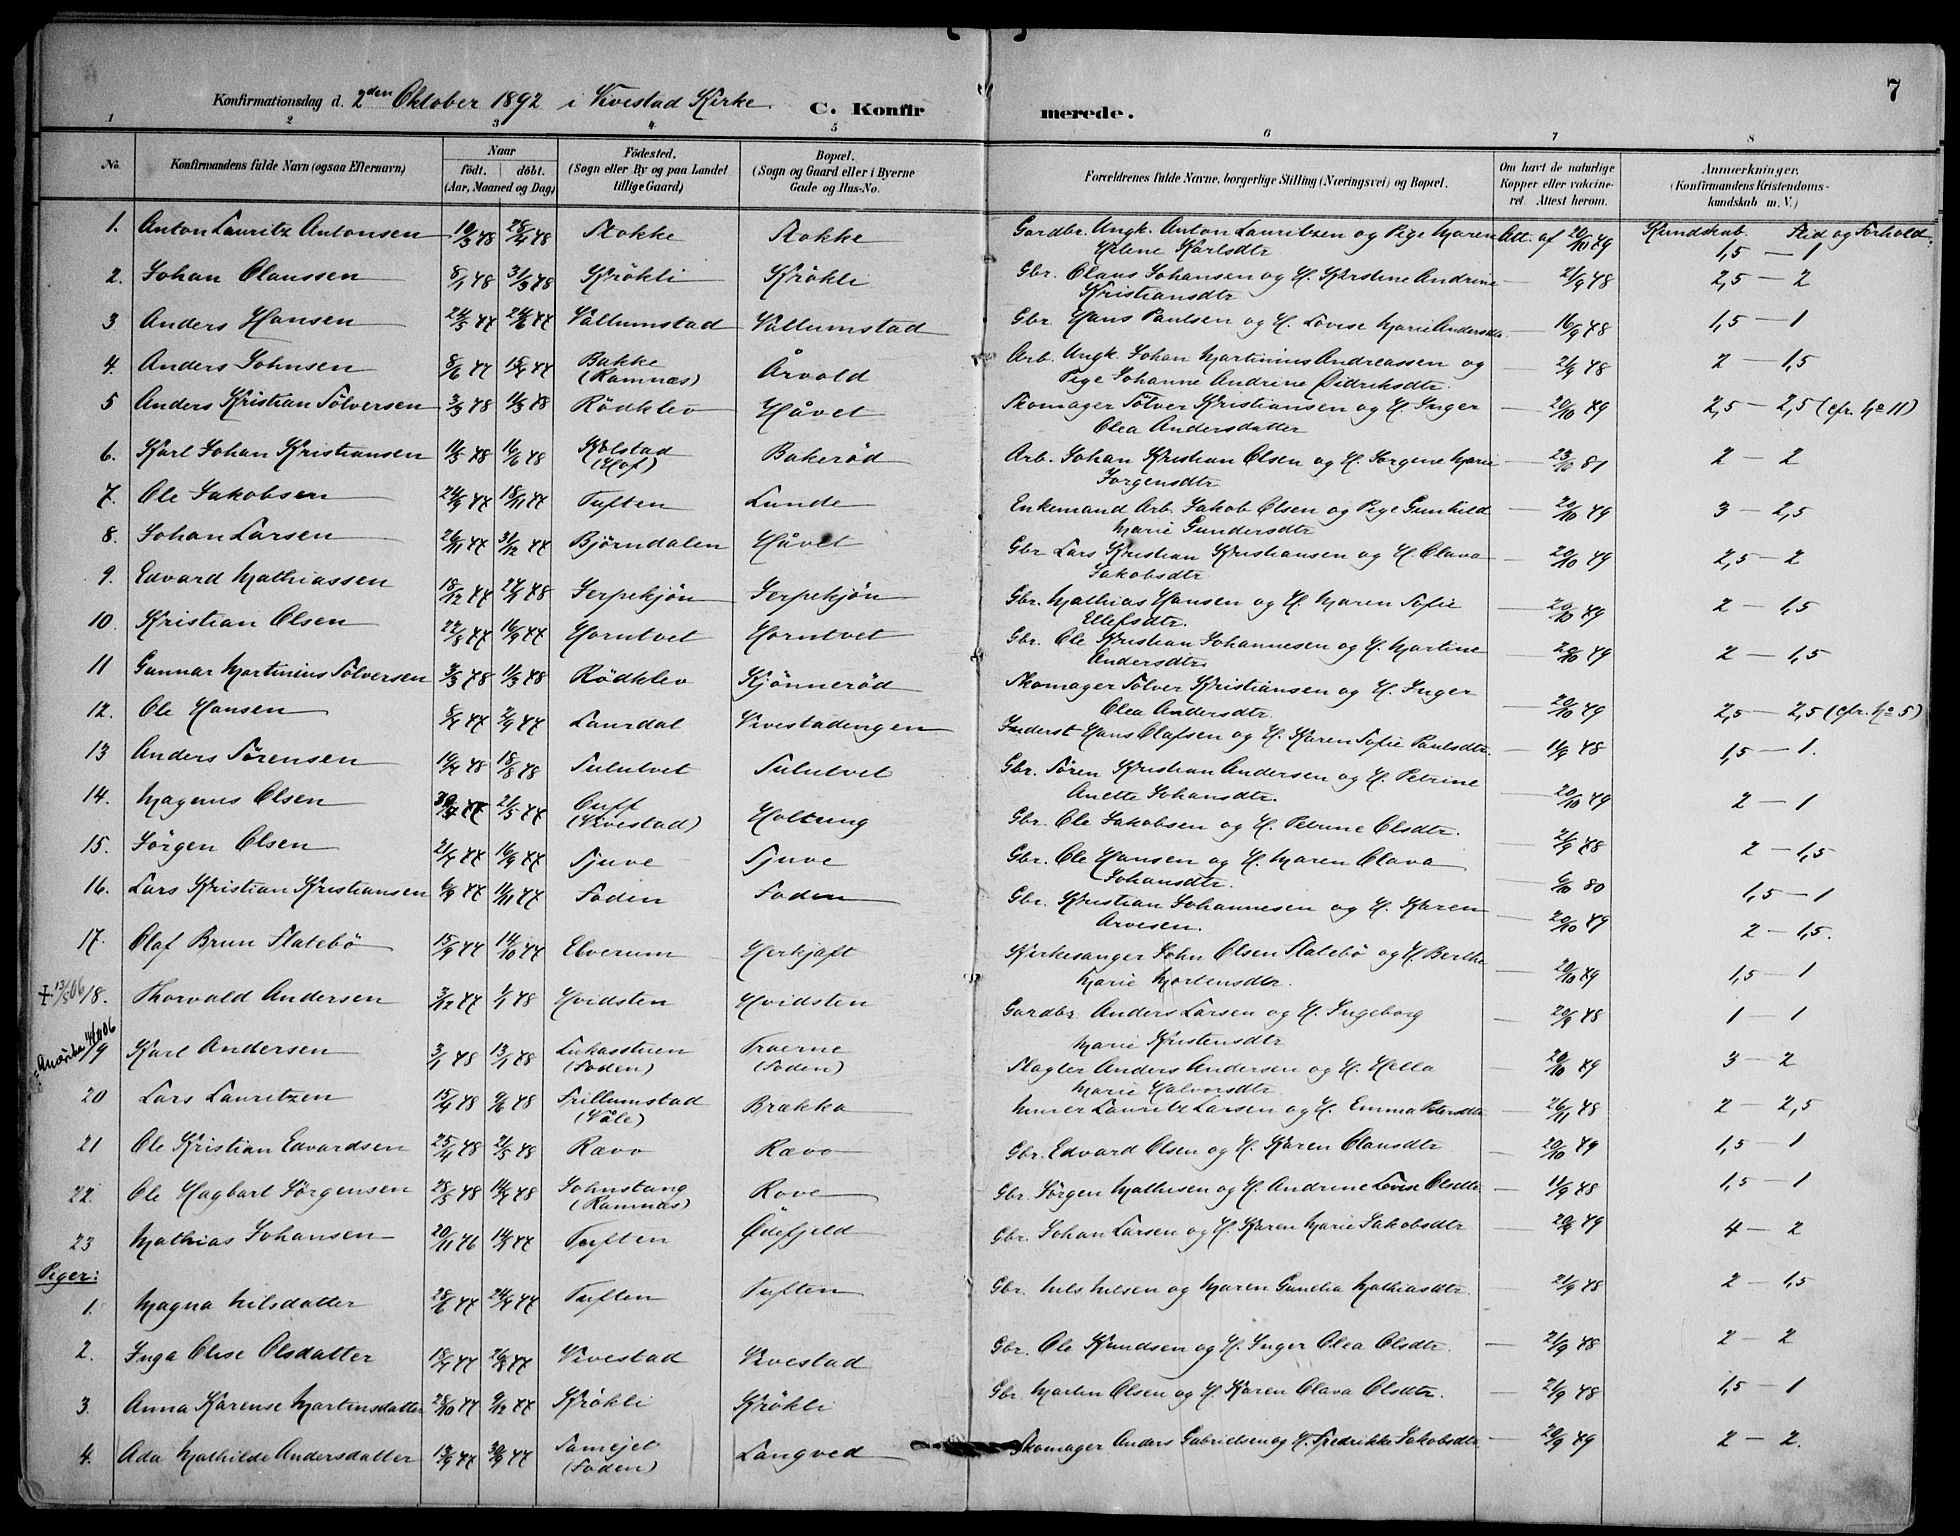 7
Konfirmationsdag d. 2den Oktober 1892 i Vivestad Kirke. C. Konfirmerede.
1 2 3 4 5 6 7 8
No. Konfirmandens fulde Navn (ogsaa Efternavn) Naar födt. döbt. (Aar, Maaned og Dag) Födested. (Sogn eller By og paa Landet tillige Gaard) Bopæl. (Sogn og Gaard eller i Byerne Gade og Hus-No. Forældrenes fulde Navne, borgerlige Stilling (Næringsvei) og Bopæl. Om havt de naturlige Kopper eller vakcineret. Attest herom. Anmærkninger. (Konfirmandens Kristendomskundskab m. V.)
Kundskab. Flid og Forhold.
1. Anton Lauritz Antonsen 10/3 78 28/4 78 Stokke Stokke Gardbr. Ungk. Anton Lauritzen og Pige Maren Att. af 20/10 79
Helene Karlsdtr 1,5 — 1
2. Johan Claussen 8/1 78 31/3 78 Krökli Krökli Gbr. Claus Johansen og H. Kirstine Andrine — 21/9 78 2,5 — 2
Kristiansdtr
3 Anders Hansen 24/5 77 24/6 77 Vallumstad Vallumstad Gbr. Hans Paulsen og H. Lovise Marie Andersdtr — 16/9 78 1,5 — 1
4. Anders Johnsen 8/6 77 Bakke (Ramnæs) Årvold Arb. Ungk. Johan Martinius Andreassen og — 21/9 78 2 — 1,5
Pige Johanne Andrine Didriksdtr.
5 Anders Kristian Sölversen 3/3 78 11/3 78 Rödklev Håvet Skomager Sölver Kristiansen og H. Inger — 20/10 79 2,5 — 2,5 (cfr. No 11)
Olea Andersdatter
6. Karl Johan Kristiansen 11/5 78 16/6 78 Kolstad (Hof) Bakeröd Arb. Johan Kristian Olsen og H. Jorgine Marie — 23/10 81 2 — 2
Jorgensdtr.
7. Ole Jakobsen 24/9 77 18/11 77 Tuften Lunde Enkemand Arb. Jakob Olsen og Pige Gunhild — 20/10 79 3 — 2,5
Marie Gundersdtr
8. Johan Larsen 26/11 77 31/12 77 Björndalen Håvet Gbr. Lars Kristian Kristiansen og H. Olava — 20/10 79 2,5 — 2
Jakobsdtr
9. Edvard Mathiassen 18/12 77 27/1 78 Jerpekjön Jerpekjön Gbr. Mathias Hansen og H. Maren Sofie — 20/10 79 2 — 1,5
Ellefsdtr.
10. Kristian Olsen 22/8 77 16/9 77 Horntvet Horntvet Gbr. Ole Kristian Johannesen og H. Martine — 20/10 79 2 — 1,5
Andersdtr.
11 Gunnar Martinius Sölversen 3/3 78 11/3 78 Rödklev Kjönneröd Skomager Sölver Kristiansen og H. Inger — 20/10 79 2,5 — 2,5 (cfr. No 5)
Olea Andersdtr.
12. Ole Hansen 2/9 77 Laurdal Vivestadengen Inderst Hans Olafsen og H. Karen Sofie Paulsdtr. — 11/9 78 1,5 — 1.
13 Anders Sörensen 18/8 78 Sulutvet Sulutvet Gbr. Sören Kristian Andersen og H. Petrine — 20/10 79 2 — 1
Anette Johansdtr.
14. Magnus Olsen 21/5 77 (Vivestad) Holtung Gbr. Ole Jakobsen og H. Petrine Olsdtr. — 21/9 78 2 — 1,5
15. Jörgen Olsen 21/7 77 16/9 77 Sjuve Sjuve Gbr. Ole Hansen og H. Maren Olava — 6/10 80 1,5 — 1
Johansdtr.
16. Lars Kristian Kristiansen 6/9 77 11/11 77 Foden Foden Gbr. Kristian Johannesen og H. Karen — 20/10 79 2 — 1,5.
Arvesen.
17. Olaf Brun Flatebö 15/9 77 14/10 77 Elverum Herkjaft Kirkesanger John Olsen Flatebö og H. Berthe — 20/10 79 1,5 — 1
Marie Mortensdtr.
‡ 13/5 06 18. Thorvald Andersen 3/12 77 1/1 78 Hvidsten Hvidsten Gardbr. Anders Larsen og H. Ingeborg — 20/9 78 1 — 1
Marie Kristensdtr
Amerika 06 19 Karl Andersen 3/1 78 13/1 78 Lukasstuen (Foden) Traerne (Foden) Slagter Anders Andersen og H. Hella — 20/10 79 3 — 2
Marie Halvorsdtr
20 Lars Lauritzen 15/4 78 9/6 78 Trillumstad (Våle) Brække Murer Lauritz Larsen og H. Emma Petersdtr — 26/11 78 2 — 2,5
21 Ole Kristian Edvardsen 25/4 78 21/5 78 Rævo Rævo Gbr. Edvard Olsen og H. Karen Olausdtr — 20/10 79 1,5 — 1
22. Ole Hagbart Jörgensen 28/5 78 14/7 78 Johnstang (Ramnæs) Rove Gbr. Jörgen Mathisen og H. Andrine Lovise Olsdtr — 11/9 78 1,5 — 1
23 Mathias Johansen 20/11 76 Tuften Ödefjeld Gbr. Johan Larsen og H. Karen Marie Jakobsdtr — 79 4 — 2
Piger:
1. Magna Nilsdatter 28/6 77 Tuften Tuften Gbr. Nils Nilsen og Maren Gunelia Mathiasdtr. — 21/9 78 2 — 1,5
2. Inga Elise Olsdatter 18/7 77 26/8 77 Vivestad Vivestad Gbr. Ole Knudsen og H. Inger Olea Olsdtr. — 21/9 78 2 — 2
3. Anna Karense Martinsdatter 28/10 77 9/12 77 Krökli Krökli Gbr. Martin Olsen og H. Karen Olava Olsdtr. — 21/9 78 1,5 — 1
4. Ada Mathilde Andersdatter 13/9 77 30/9 77 Samejet (Foden) Langved Skomager Anders Gabrielsen og H. Fredrikke Jakobsdtr — 20/9 79 2 — 2.